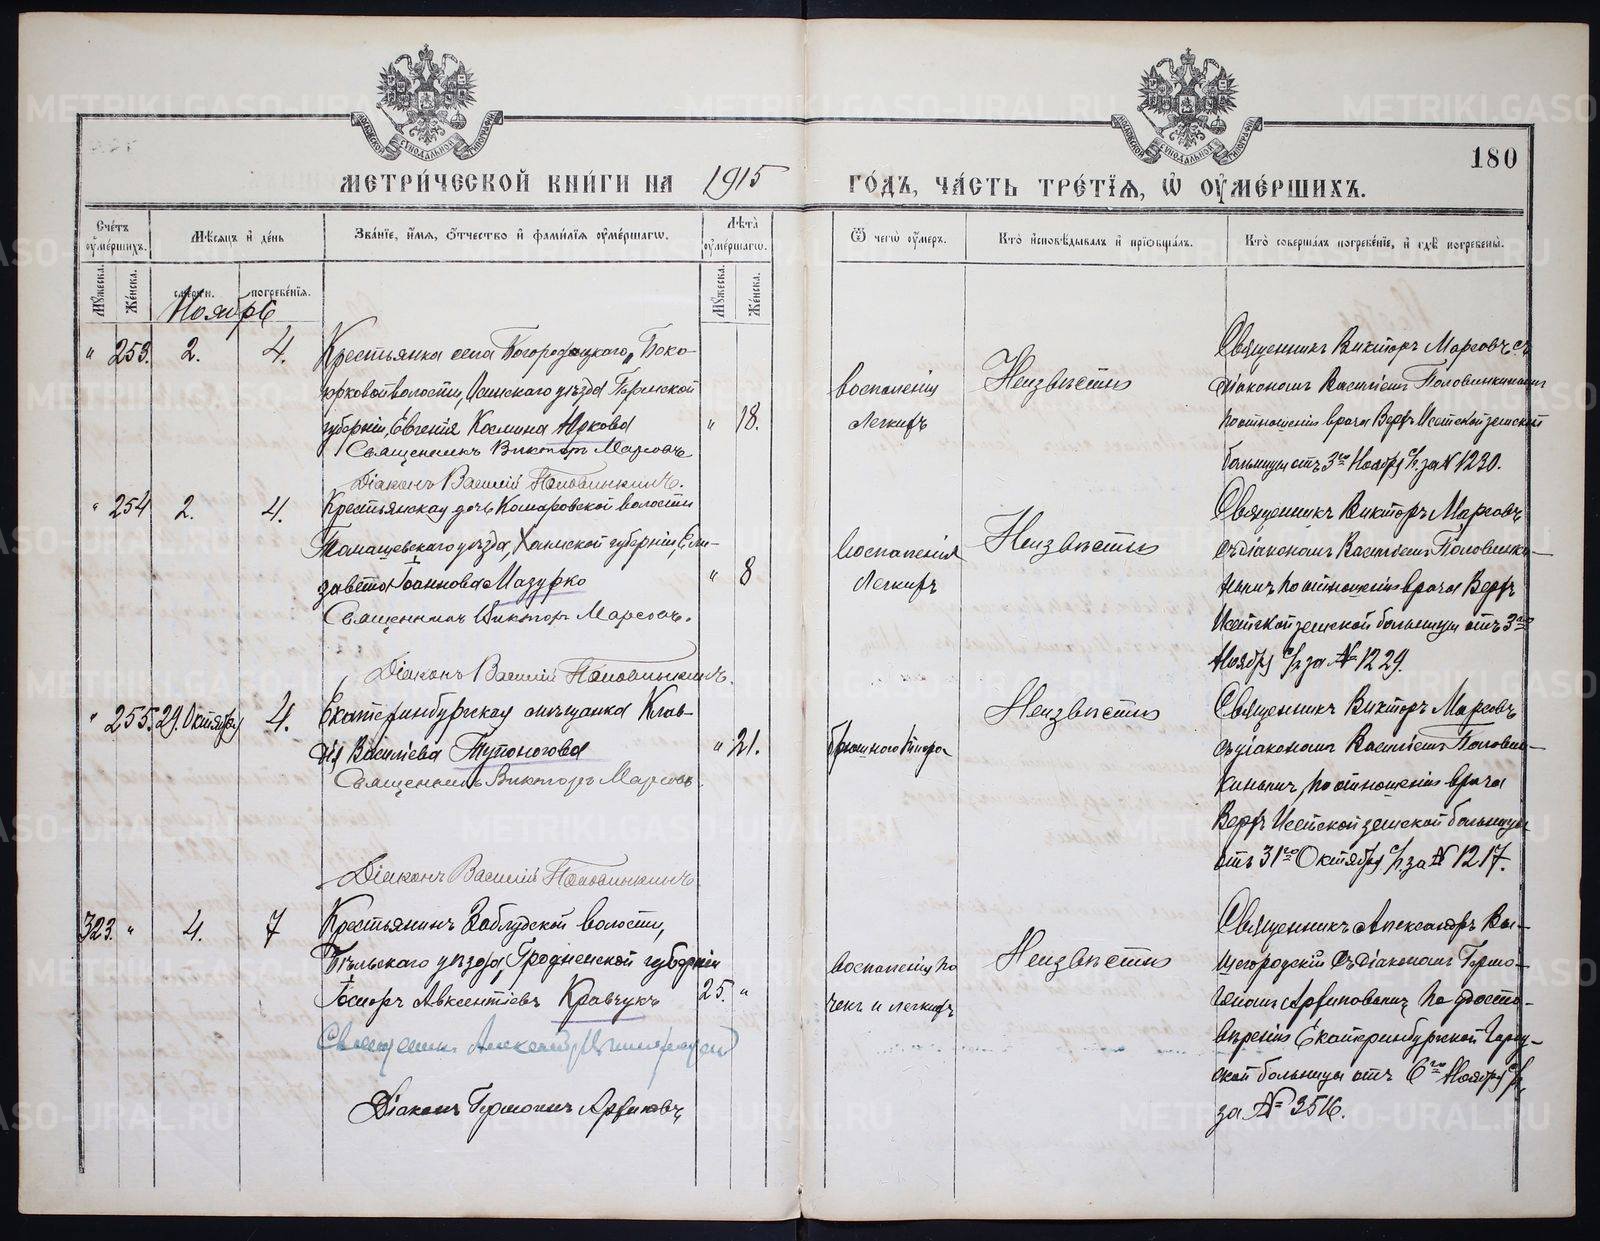 МЕТРИ́ЧЕСКОЙ КНИ́ГИ НА 1915 ГО́ДЪ, ЧА́СТЬ ТРЕ́ТІѦ, Ѡ҆ ОУ҆МЕ́РШИХЪ.
180
Сче́тъ оу҆ме́ршихъ.
Мѣ́сяцъ и҆ де́нь
Зва́нїе, и҆́мя, ѻ҆́тчество и҆ фами́лїя оу҆ме́ршагѡ.
Лѣ́та оу҆ме́ршагѡ.
Ѿ чегѡ̀ оу҆́меръ.
Кто̀ и҆сповѣ́дывалъ и҆ прїѡбща́лъ.
Кто̀ соверша́лъ погребе́нїе, и҆ гдѣ̀ погребены̀.
Мꙋ́жеска.
Же́нска.
сме́рти.
погребе́нїя.
Мꙋ́жеска.
Же́нска.
Ноябрь
" 253. 2. 4.
Крестьянка села Богородицкаго,
волости, Осинскаго уѣзда Пермской
губерніи, Евгенія Космина Юркова
Священникъ Викторъ Марсовъ
Діаконъ Василій Половинкинъ.
" 18.
воспаленія
легкихъ
Неизвѣстно
Священникъ Викторъ Марсовъ съ
діакономъ Василіемъ Половинкинымъ
по отношенію врача Верхъ Исетской земской
больницы отъ 3го Ноября с/г за № 1230.
" 254 2. 4.
Крестьянская дочь Комаровской волости
Томашевскаго уѣзда, Холмской губерніи, Ели-
завета Іоаннова Мазурко
Священникъ Викторъ Марсовъ.
Діаконъ Василій Половинкинъ.
" 8
воспаленія
легкихъ
Неизвѣстно
Священникъ Викторъ Марсовъ
съ діакономъ Василіемъ Половинки-
нымъ по отношенію врача Верхъ
Исетской земской больницы отъ 3го
Ноября с/г за № 1229.
" 255. 29. Октября 4.
Екатеринбургская мѣщанка Клав-
дія Васильева Тупоногова
Священникъ Викторъ Марсовъ.
Діаконъ Василій Половинкинъ
" 21.
брюшного тифа
Неизвѣстно
Священникъ Викторъ Марсовъ
съ діакономъ Василіемъ Половин-
кинымъ, по отношенію врача
Верхъ Исетской земской больницы
отъ 31го Октября с/г за № 1217.
323. " 4. 7
Крестьянинъ Заблудской волости,
Бѣльскаго уѣзда, Гродненской губерніи
Авксентіевъ Кравчукъ
Священникъ
Діаконъ Гермогенъ
25. "
воспаленія по
чекъ и легкихъ
Неизвѣстно
Священникъ Александръ Вы-
шегородскій съ діакономъ Гермо-
геномъ по удосто-
вѣренію Екатеринбургской Город-
ской больницы отъ 6го Ноября с/г
за № 3516.